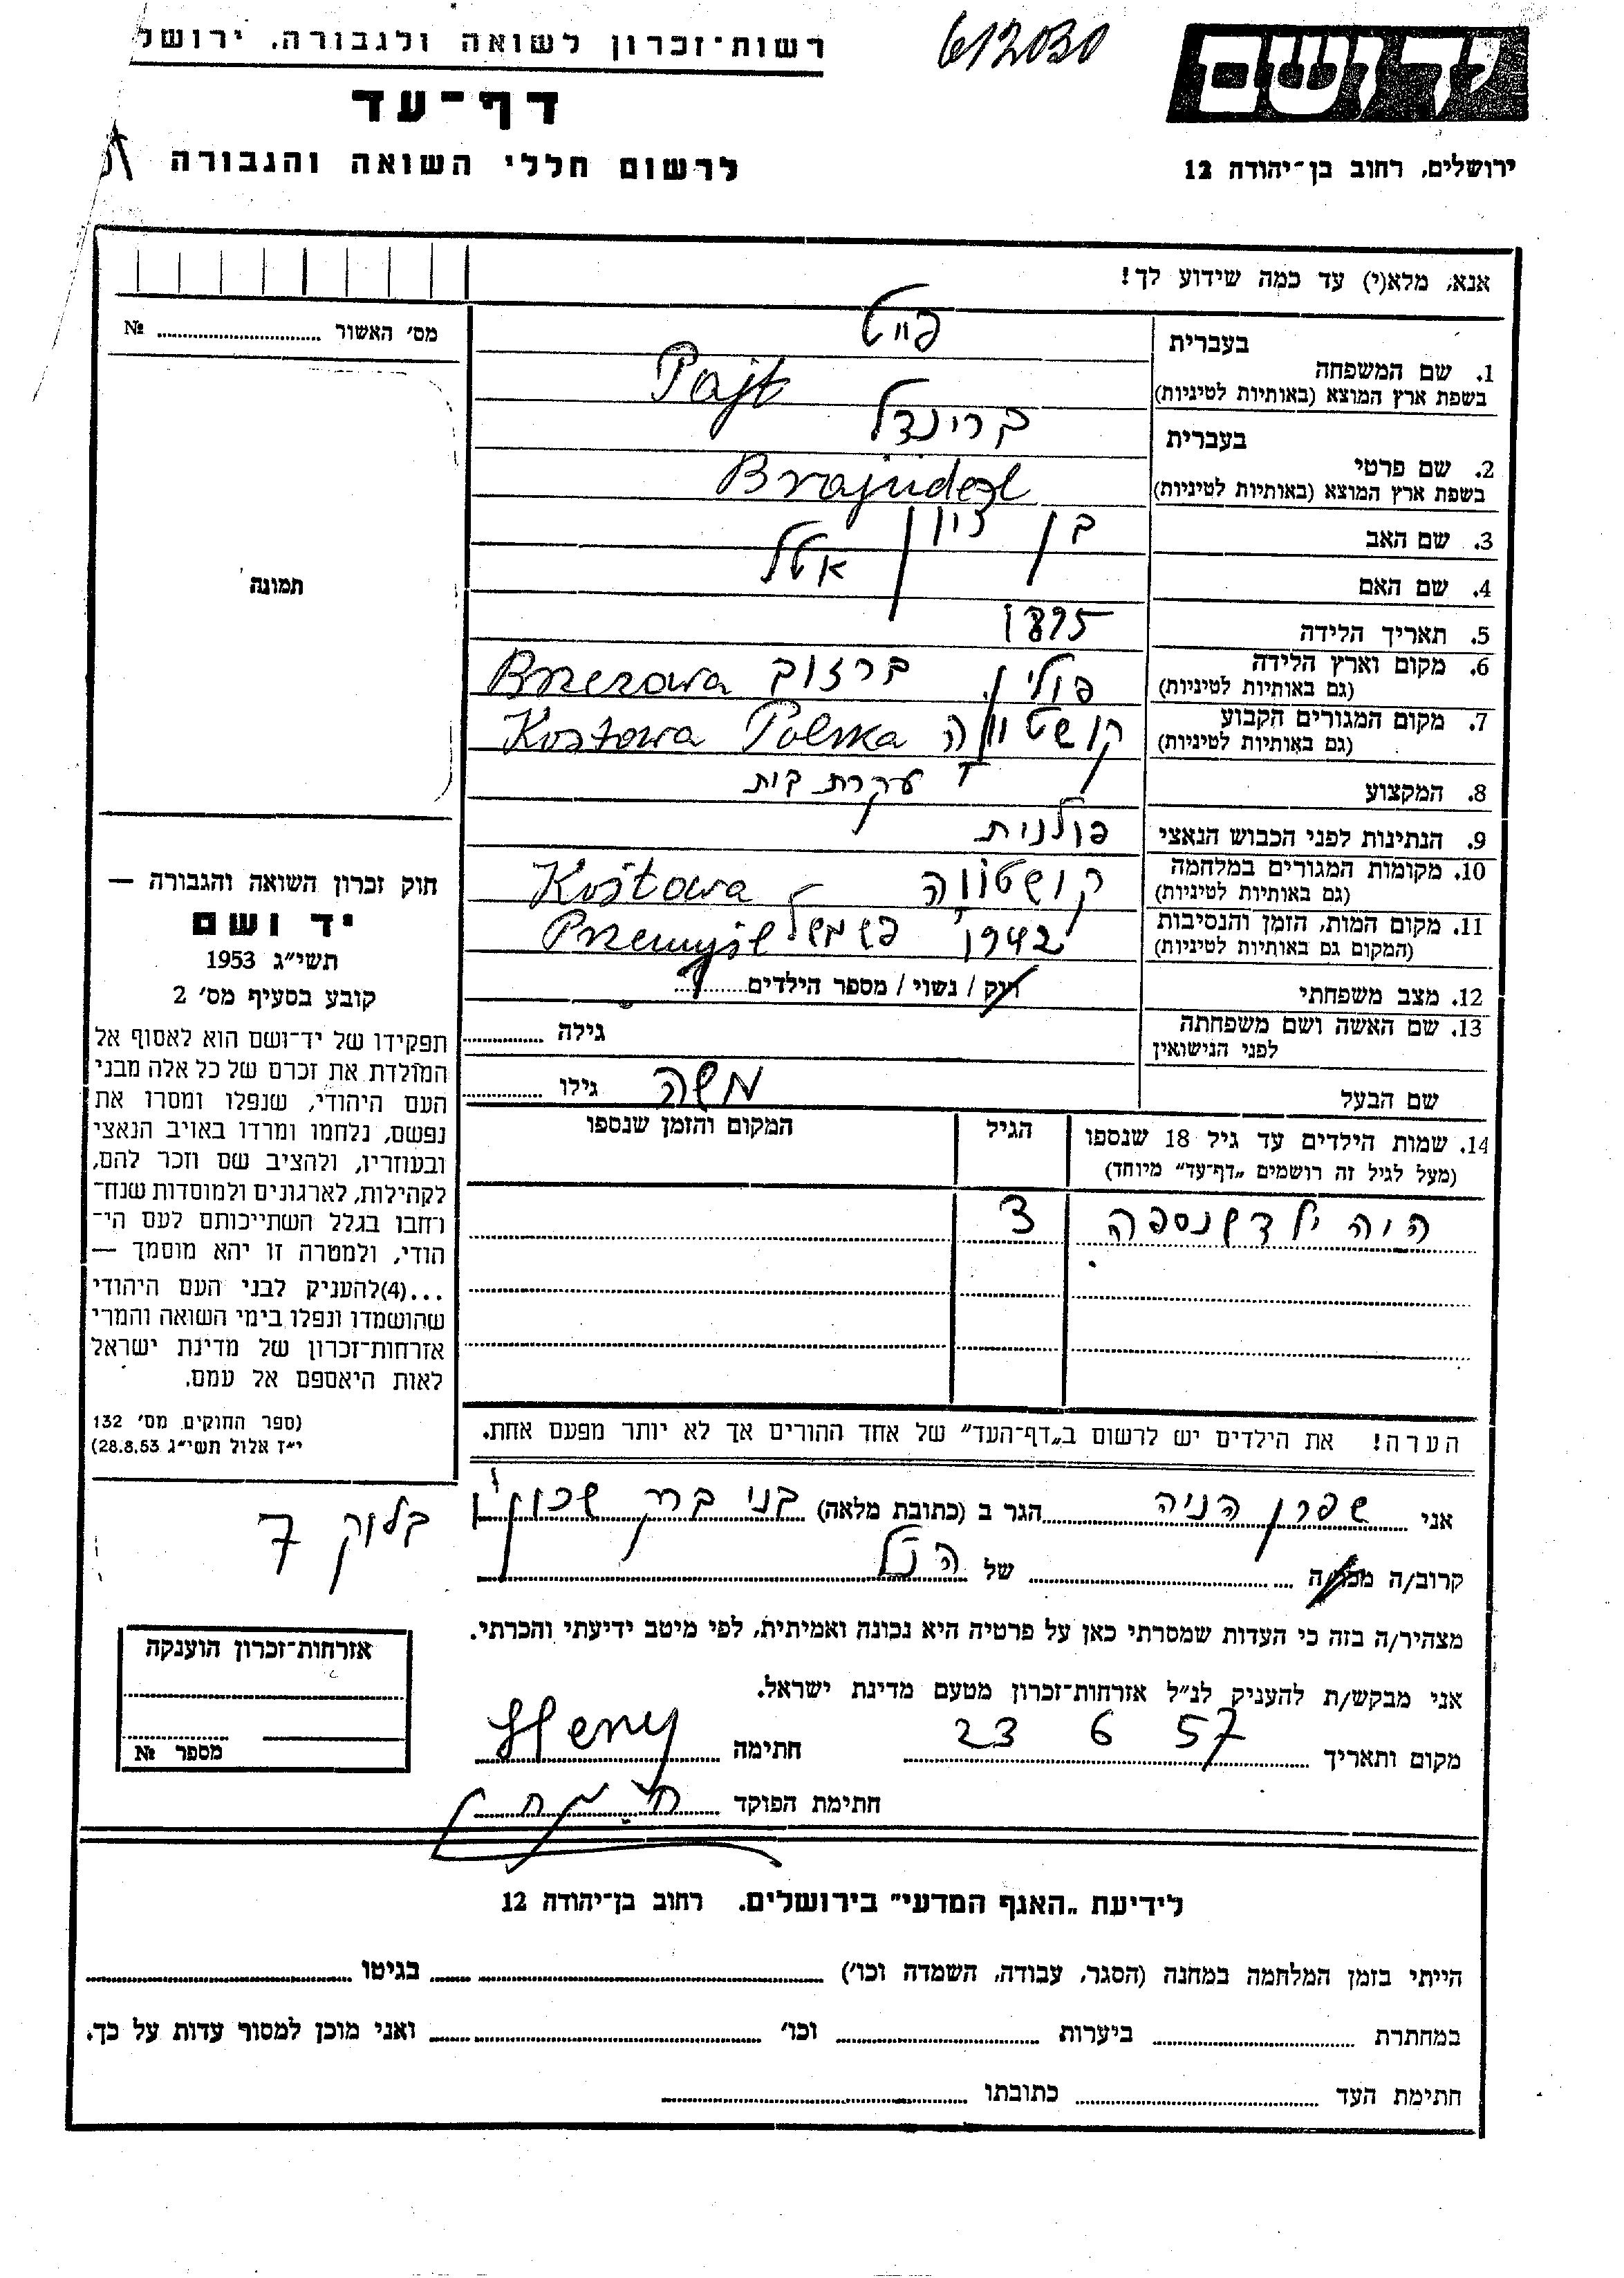 רשות־זכרון לשואה ולגבורה. ירושל
612030
יד ושם
דף־עד
לרשום חללי השואה והגבורה
ירושלים, רחוב בן־יהודה 12
אנא, מלא(י) עד כמה שידוע לך!
מס׳ האשור № 
תמונה
1. שם המשפחה בעברית פייט
בשפת ארץ המוצא (באותיות לטיניות) Pajt
2. שם פרטי בעברית בריינדל
בשפת ארץ המוצא (באותיות לטיניות) Brajndel
3. שם האב בן ציון
4. שם האם אטל
5. תאריך הלידה 1895
6. מקום וארץ הלידה פולין ברזוב Brzezowa
(גם באותיות לטיניות)
7. מקום המגורים הקבוע קושטווה Kostowa Polska
(גם באותיות לטיניות)
8. המקצוע עקרת בית
9. הנתינות לפני הכבוש הנאצי פולנית
10. מקומות המגורים במלחמה קושטווה Kostowa
(גם באותיות לטיניות)
11. מקום המות, הזמן והנסיבות 1942 פשמישל Przemyśl
(המקום גם באותיות לטיניות)
12. מצב משפחתי רוק / נשוי / מספר הילדים
13. שם האשה ושם משפחתה גילה
לפני הנישואין
שם הבעל משה גילו
14. שמות הילדים עד גיל 18 שנספו הגיל המקום והזמן שנספו
(מעל לגיל זה רושמים „דף־עד״ מיוחד)
היה ילד שנספה 3
הערה! את הילדים יש לרשום ב„דף־העד״ של אחד ההורים אך לא יותר מפעם אחת.
חוק זכרון השואה והגבורה —
יד ושם
תשי״ג 1953
קובע בסעיף מס׳ 2
תפקידו של יד־ושם הוא לאסוף אל
המולדת את זכרם של כל אלה מבני
העם היהודי, שנפלו ומסרו את
נפשם, נלחמו ומרדו באויב הנאצי
ובעוזריו, ולהציב שם וזכר להם,
לקהילות, לארגונים ולמוסדות שנח־
רחבו בגלל השתייכותם לעם הי־
הודי, ולמטרה זו יהא מוסמך —
...(4)להעניק לבני העם היהודי
שהושמדו ונפלו בימי השואה והמרי
אזרחות־זכרון של מדינת ישראל
לאות היאספם אל עמם.
(ספר החוקים מס׳ 132
י״ז אלול תשי״ג 28.8.53)
אני שפרן הניה הגר ב (כתובת מלאה) בני ברק שכון
בלוק 7
קרוב/ה מכר/ה של הנ״ל
מצהיר/ה בזה כי העדות שמסרתי כאן על פרטיה היא נכונה ואמיתית, לפי מיטב ידיעתי והכרתי.
אני מבקש/ת להעניק לנ״ל אזרחות־זכרון מטעם מדינת ישראל.
מקום ותאריך 23 6 57 חתימה Heny
חתימת הפוקד
אזרחות־זכרון הוענקה
מספר №
לידיעת „האגף המדעי״ בירושלים. רחוב בן־יהודה 12
הייתי בזמן המלחמה במחנה (הסגר, עבודה, השמדה וכו׳) בגיטו
במחתרת ביערות וכו׳ ואני מוכן למסור עדות על כך.
חתימת העד כתובתו